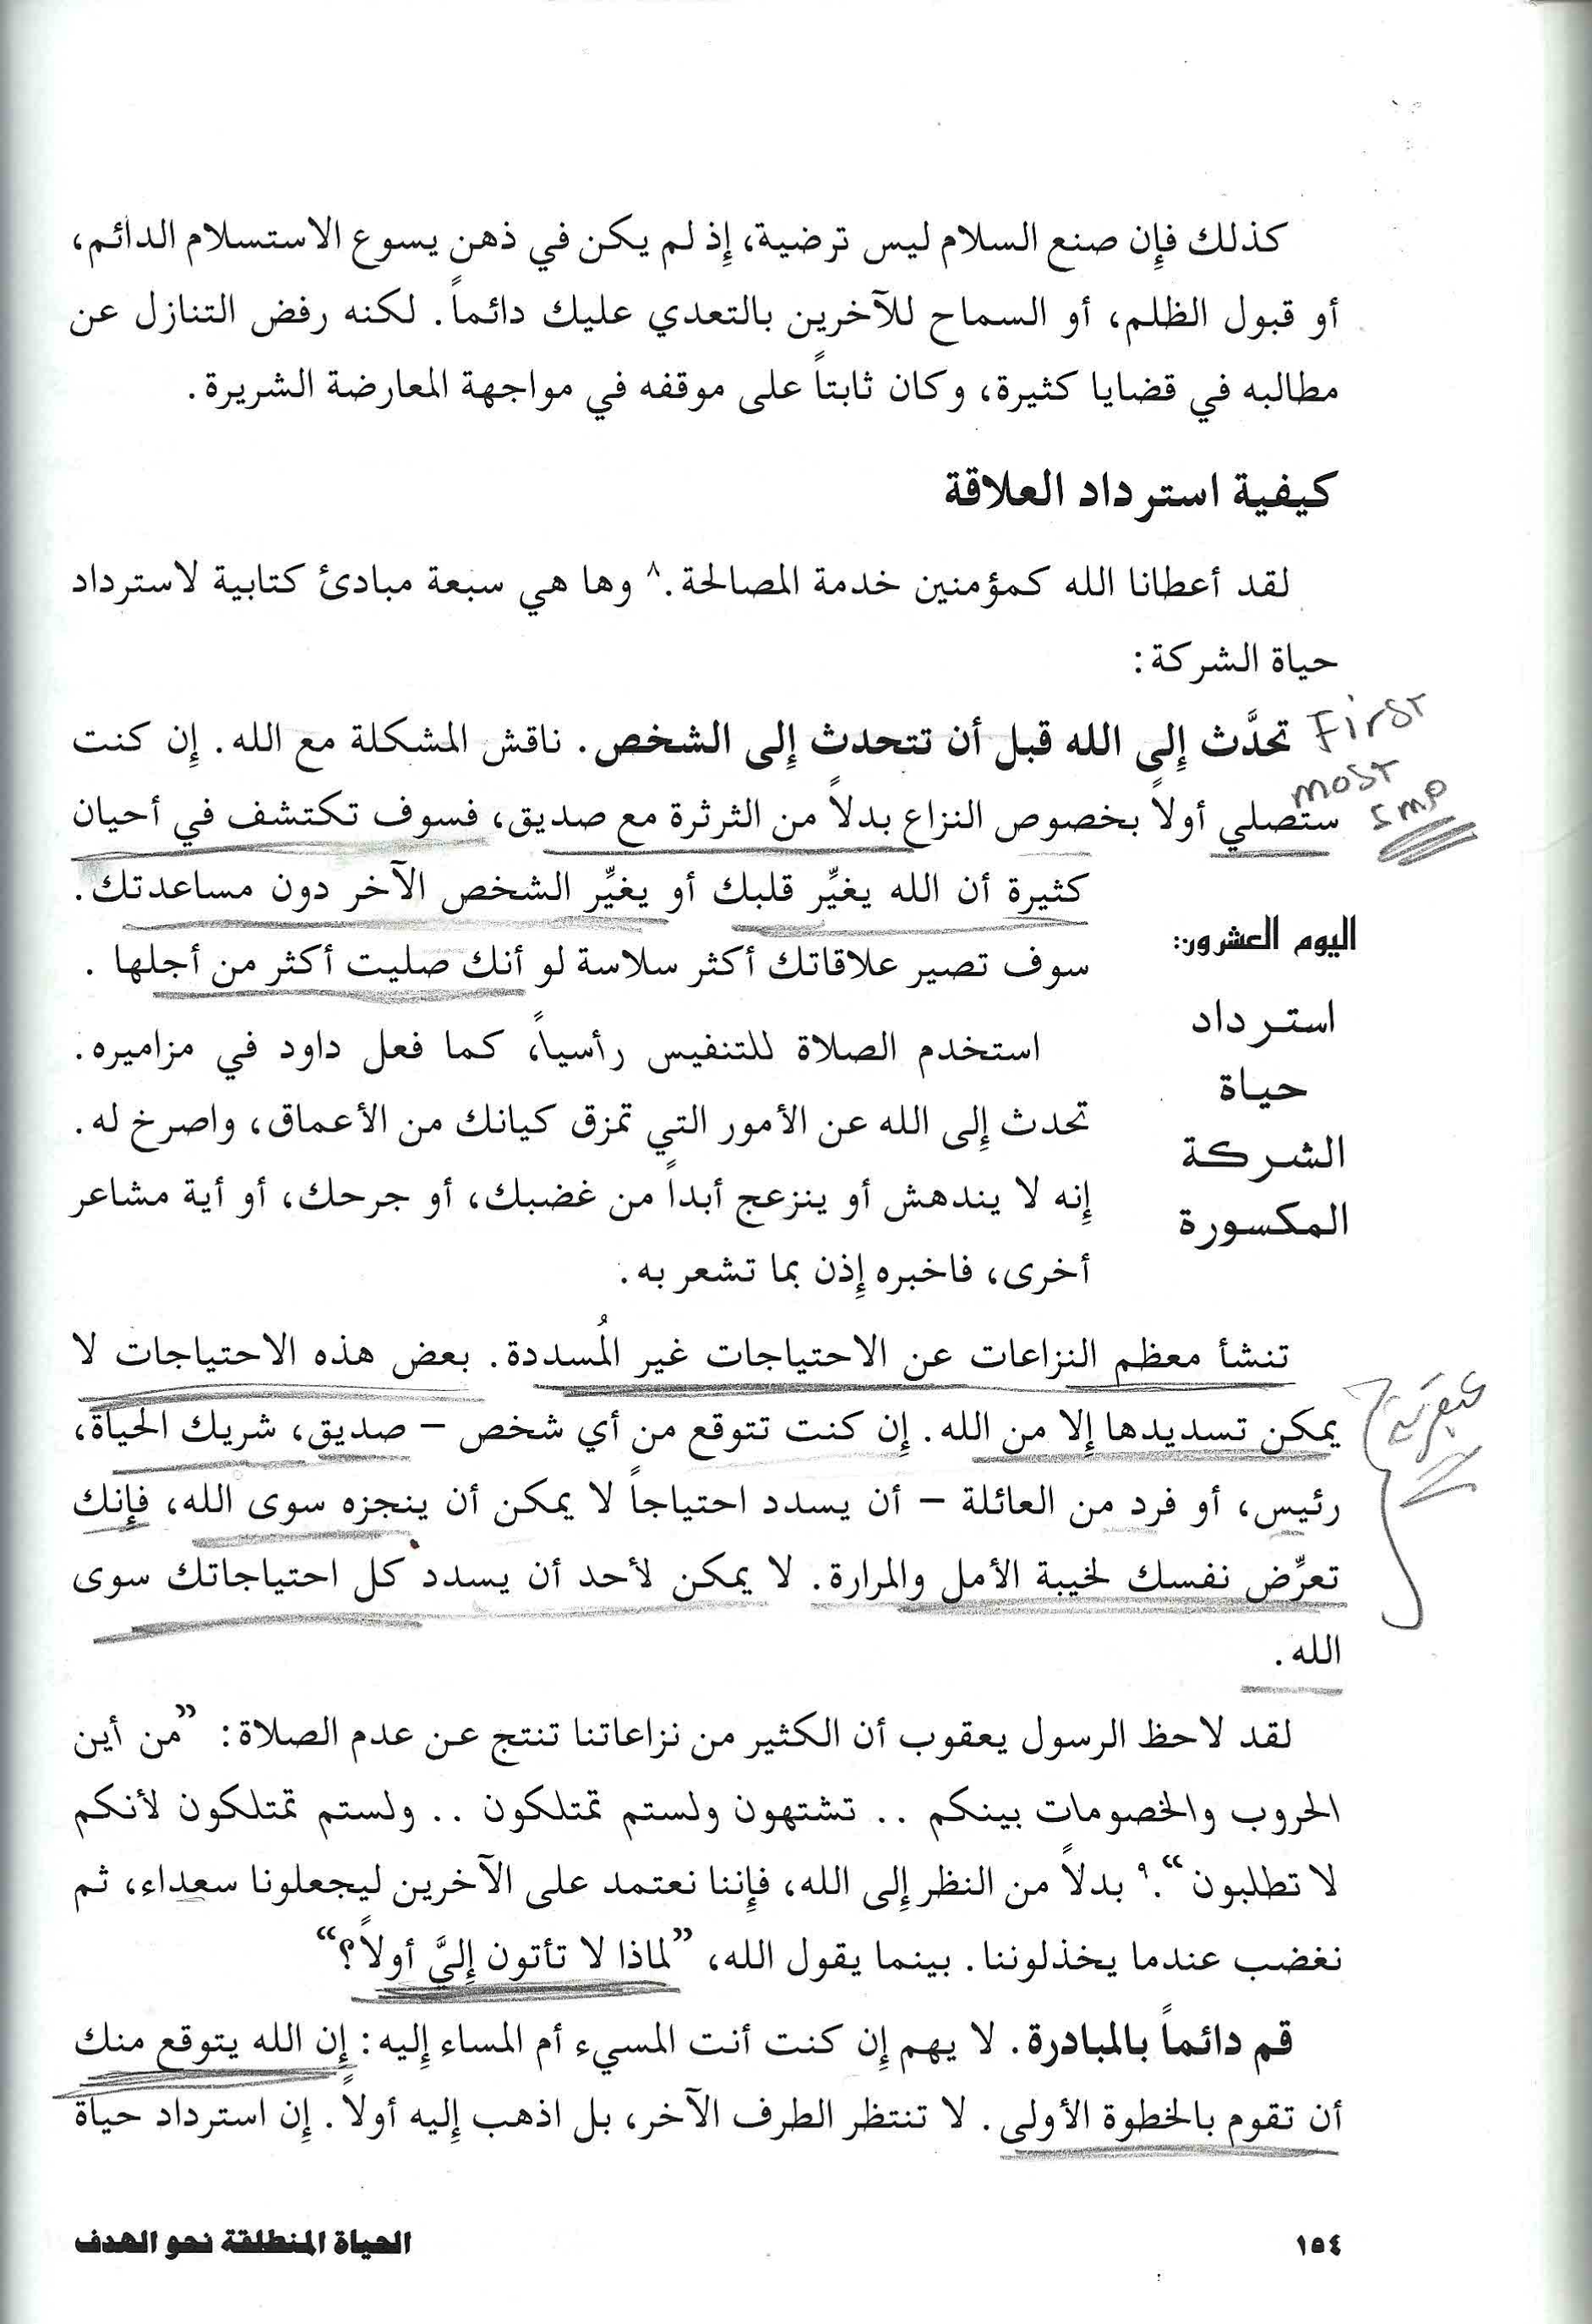 كذلك فإِن صنع السلام ليس ترضية، إِذ لم يكن في ذهن يسوع الاستسلام الدائم،
أو قبول الظلم، أو السماح للآخرين بالتعدي عليك دائماً. لكنه رفض التنازل عن
مطالبه في قضايا كثيرة، وكان ثابتاً على موقفه في مواجهة المعارضة الشريرة.
كيفية استرداد العلاقة
لقد أعطانا الله كمؤمنين خدمة المصالحة.٨ وها هي سبعة مبادئ كتابية لاسترداد
حياة الشركة:
تحدَّث إِلى الله قبل أن تتحدث إِلى الشخص. ناقش المشكلة مع الله. إِن كنت
First
ستصلي أولاً بخصوص النزاع بدلاً من الثرثرة مع صديق، فسوف تكتشف في أحيان
most
Imp
كثيرة أن الله يغيِّر قلبك أو يغيِّر الشخص الآخر دون مساعدتك.
سوف تصير علاقاتك أكثر سلاسة لو أنك صليت أكثر من أجلها .
استخدم الصلاة للتنفيس رأسياً، كما فعل داود في مزاميره.
تحدث إِلى الله عن الأمور التي تمزق كيانك من الأعماق، واصرخ له.
إِنه لا يندهش أو ينزعج أبداً من غضبك، أو جرحك، أو أية مشاعر
أخرى، فاخبره إِذن بما تشعر به.
اليوم العشرون:
استرداد
حياة
الشركة
المكسورة
تنشأ معظم النزاعات عن الاحتياجات غير المُسددة. بعض هذه الاحتياجات لا
يمكن تسديدها إِلا من الله. إِن كنت تتوقع من أي شخص – صديق، شريك الحياة،
عبقرية
رئيس، أو فرد من العائلة – أن يسدد احتياجاً لا يمكن أن ينجزه سوى الله، فإِنك
تعرِّض نفسك لخيبة الأمل والمرارة. لا يمكن لأحد أن يسدد كل احتياجاتك سوى
الله.
لقد لاحظ الرسول يعقوب أن الكثير من نزاعاتنا تنتج عن عدم الصلاة: ”من أين
الحروب والخصومات بينكم .. تشتهون ولستم تمتلكون .. ولستم تمتلكون لأنكم
لا تطلبون“.٩ بدلاً من النظر إِلى الله، فإِننا نعتمد على الآخرين ليجعلونا سعداء، ثم
نغضب عندما يخذلوننا. بينما يقول الله، ”لماذا لا تأتون إِليَّ أولاً؟“
قم دائماً بالمبادرة. لا يهم إِن كنت أنت المسيء أم المساء إِليه: إِن الله يتوقع منك
أن تقوم بالخطوة الأولى. لا تنتظر الطرف الآخر، بل اذهب إِليه أولاً. إِن استرداد حياة
١٥٤
الحياة المنطلقة نحو الهدف